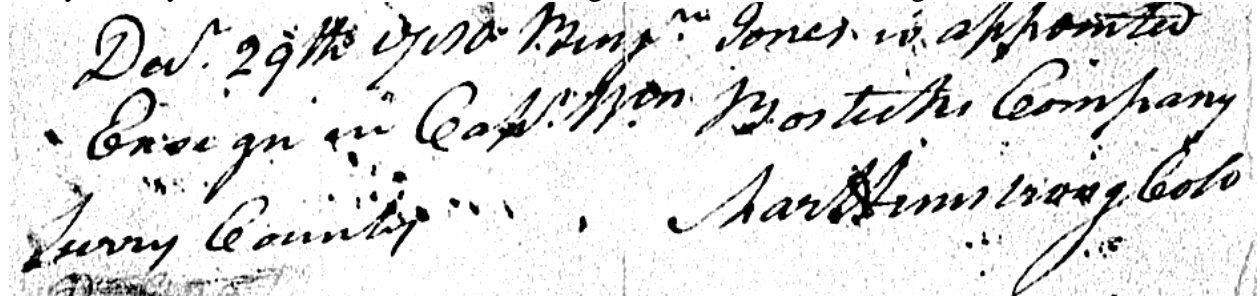 Decr. 29th 1780 Benjn. Jones is appointed
Ensign in Capt. Wm Bosticks Company
Surry County Mart Armstrong Colo